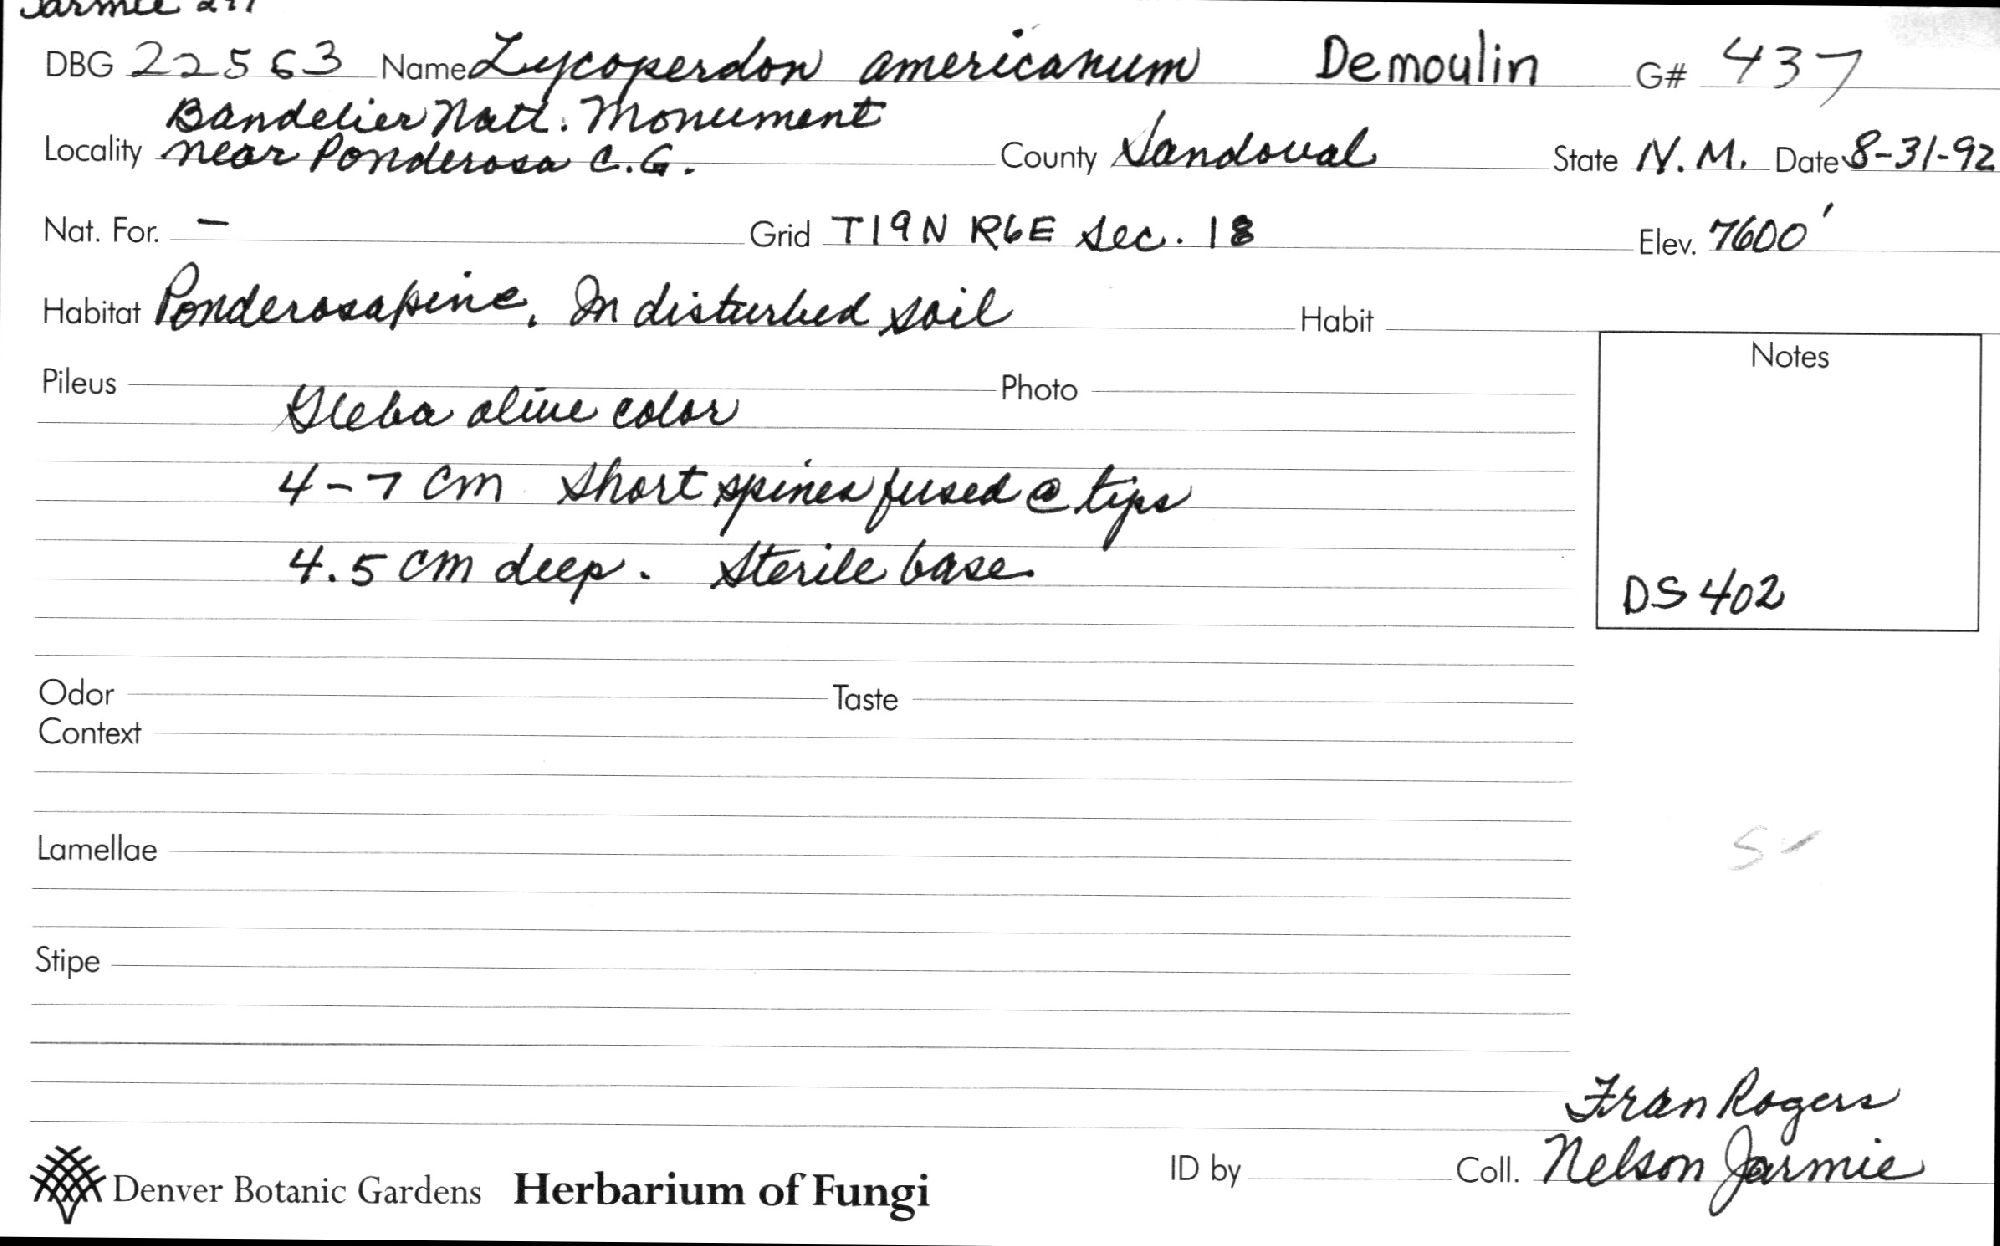 Jarmie
DBG 22563 Name Lycoperdon americanum Demoulin G# 437
Bandelier Natl. Monument
Locality near Ponderosa C.G. County Sandoval State N.M. Date 8-31-92
Nat. For. – Grid T19N R6E Sec. 18 Elev. 7600'
Habitat Ponderosa pine, In disturbed soil Habit
Notes
Pileus Photo
Gleba olive color
4-7 cm short spines fused @ tips
4.5 cm deep. Sterile base.
DS 402
Odor Taste
Context
Lamellae
Stipe
Fran Rogers
ID by Coll. Nelson Jarmie
Denver Botanic Gardens Herbarium of Fungi